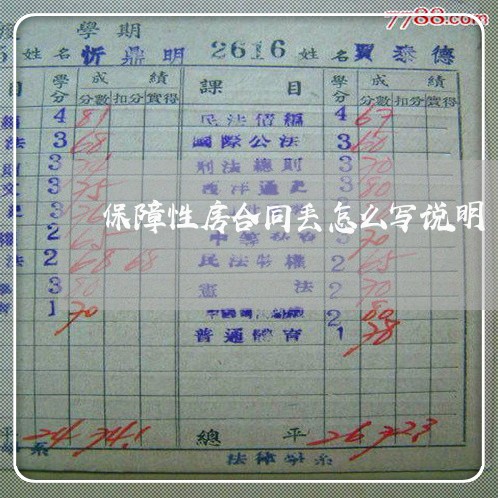 7788.com
學期
姓名 忻鼎明 2616 姓名 賈泰德
目 學分 成績 課目 學分 成績
分數 扣分 實得 分數 扣分 實得
4 81 民法債編 4 67
法 3 68 國際公法 3 60
3 刑法總則 3 70
3 75 西洋通史 3 80
保障性房合同丢怎么写说明
2 3 70
法 2 68 68 民法物權 2 65
3 80 憲法 2 70
1 70 2 80
普通體育 1 78
平 24 74.1 總平 26 72.3
系 法律學系